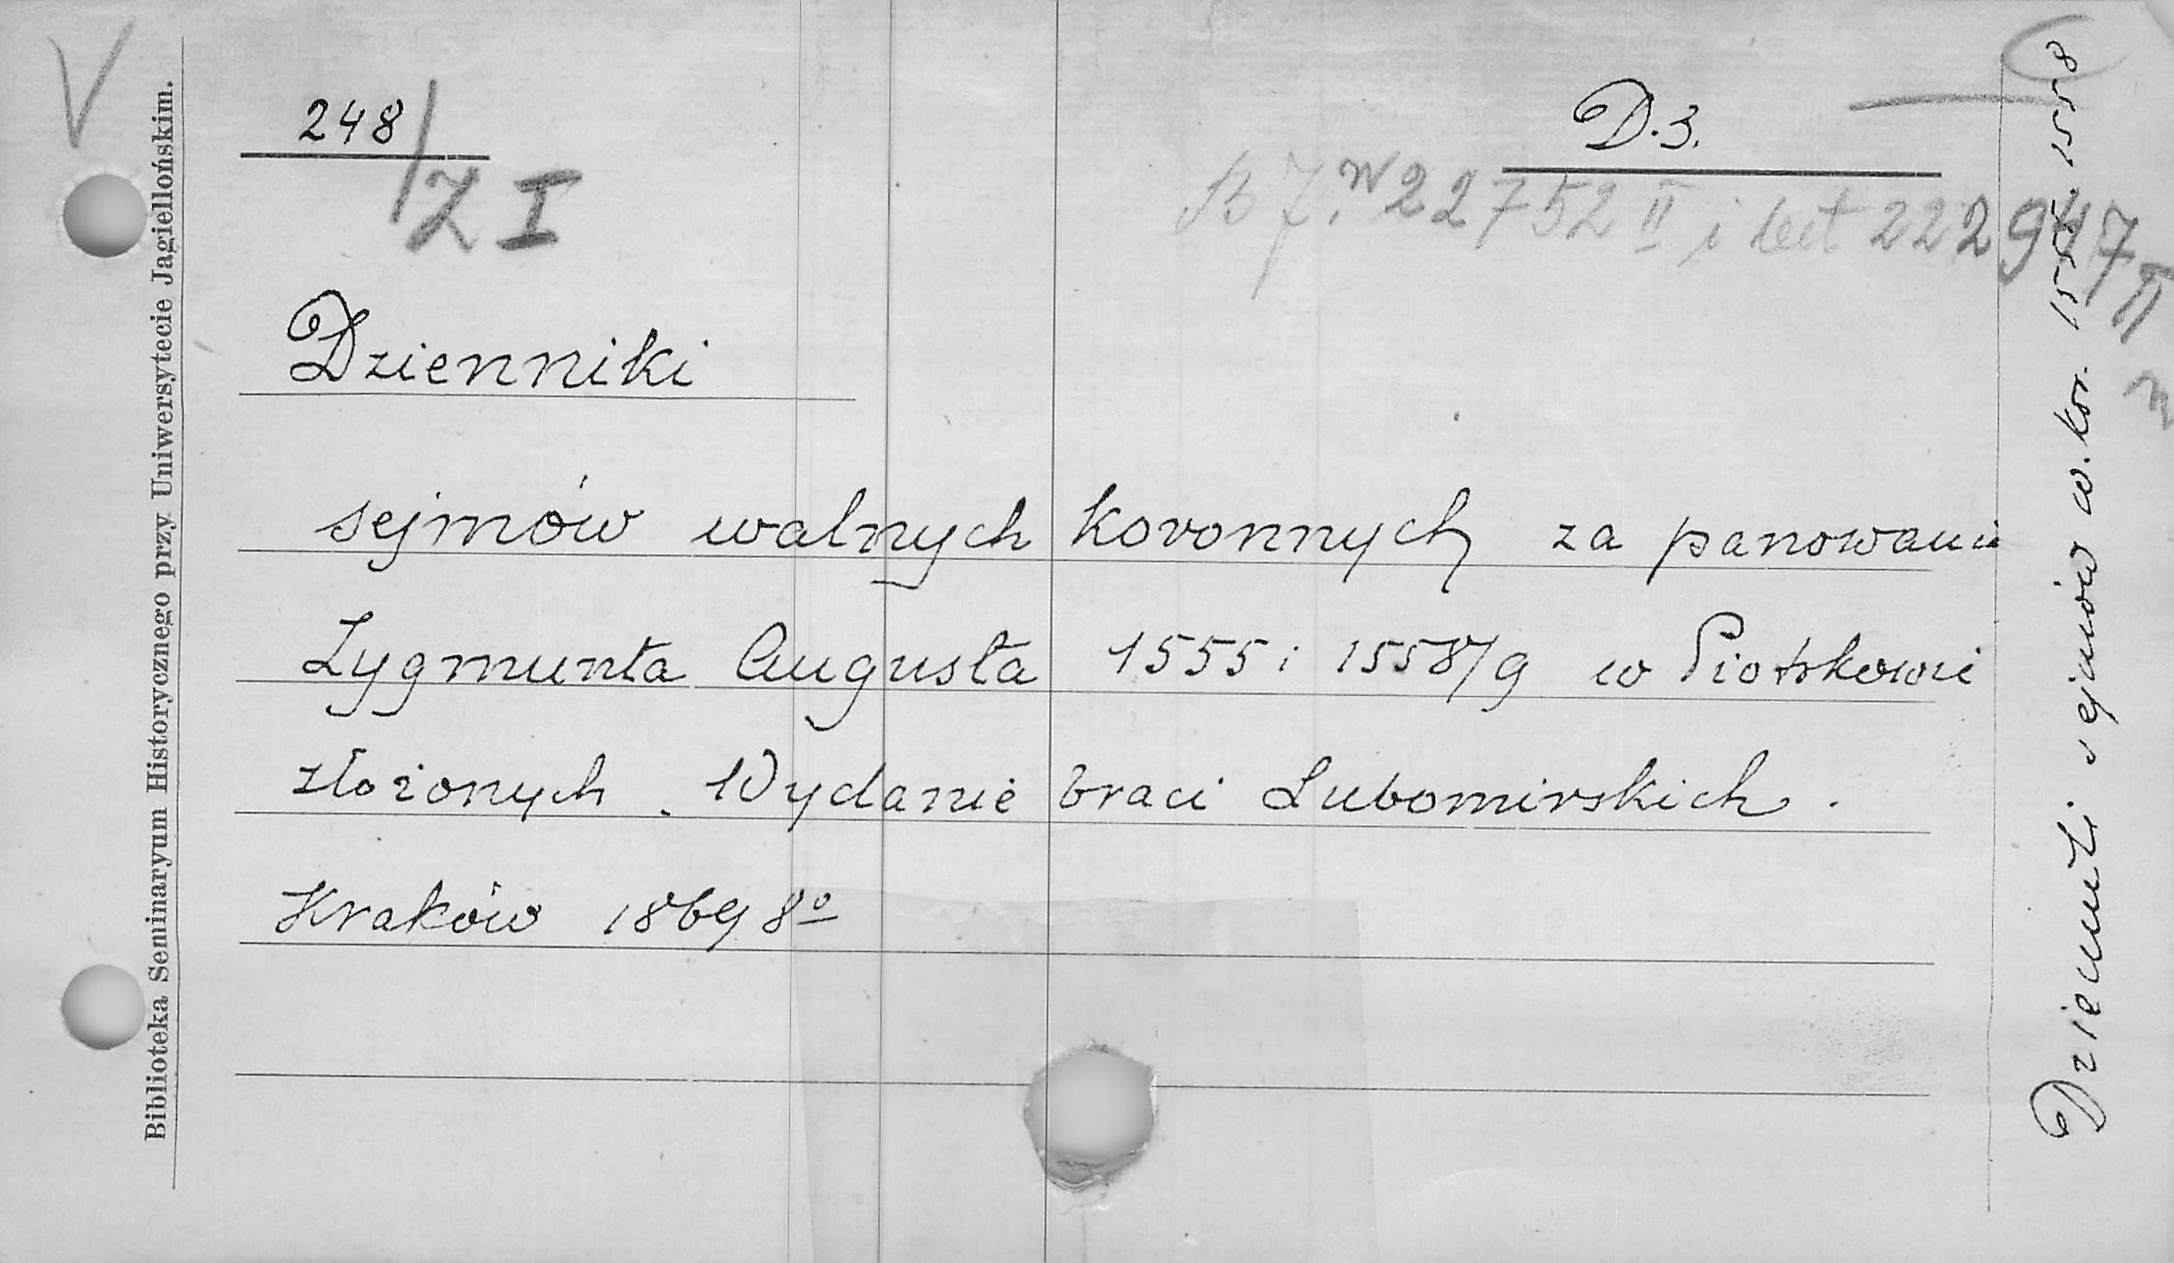 Biblioteka Seminaryum Historycznego przy Uniwersytecie Jagiellońskim.
V
248/Z I
D.3.
22752 II i 222947 II
Dzienniki
sejmów walnych koronnych za panowania
Zygmunta Augusta 1555 i 1558/9 w Piotrkowie
złożonych. Wydanie braci Lubomirskich.
Kraków 1869 8º
Dzienniki. sejmów w. kor. 1555. 1558